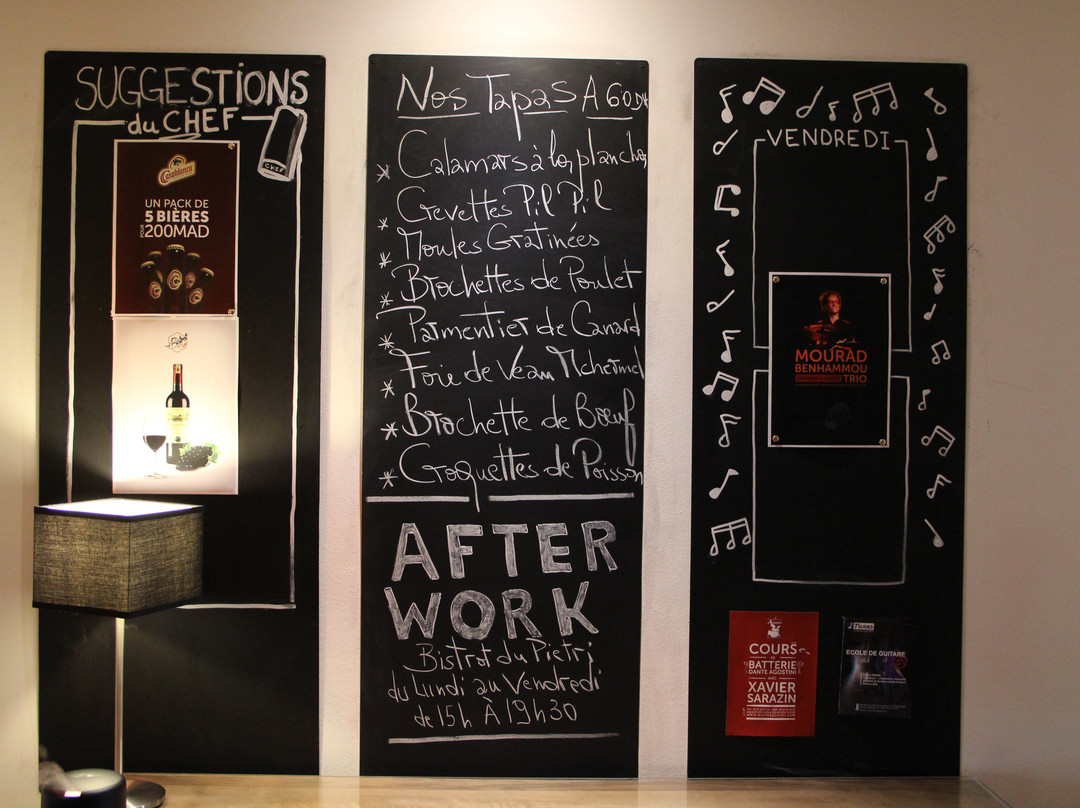 SUGGESTIONS
du CHEF
CHEF
Casablanca
UN PACK DE
5 BIÈRES
POUR 200MAD
Nos Tapas A 60DH
* Calamars à la plancha
* Crevettes Pil Pil
* Moules Gratinées
* Brochettes de Poulet
* Parmentier de Canard
* Foie de Veau Mchermel
* Brochette de Bœuf
* Croquettes de Poisson
AFTER
WORK
Bistrot du Pietri
du Lundi au Vendredi
de 15h À 19h30
VENDREDI
MOURAD
BENHAMMOU
TRIO
COURS
DE
BATTERIE
DANTE AGOSTINI
AVEC
XAVIER
SARAZIN
Tunes
ECOLE DE GUITARE